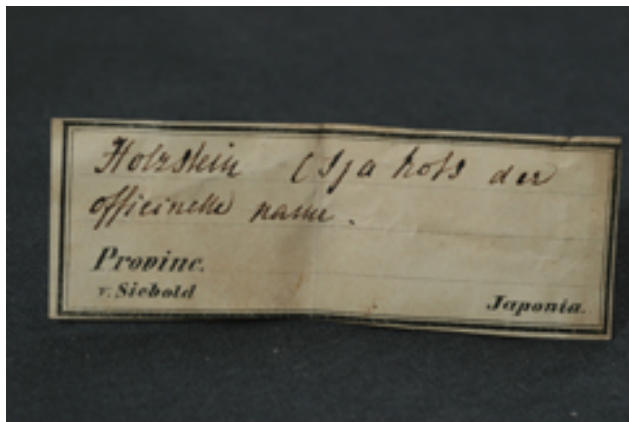 Holzstein (Sja hots der
officinelle name.
Provinc.
v. Siebold
Japonia.